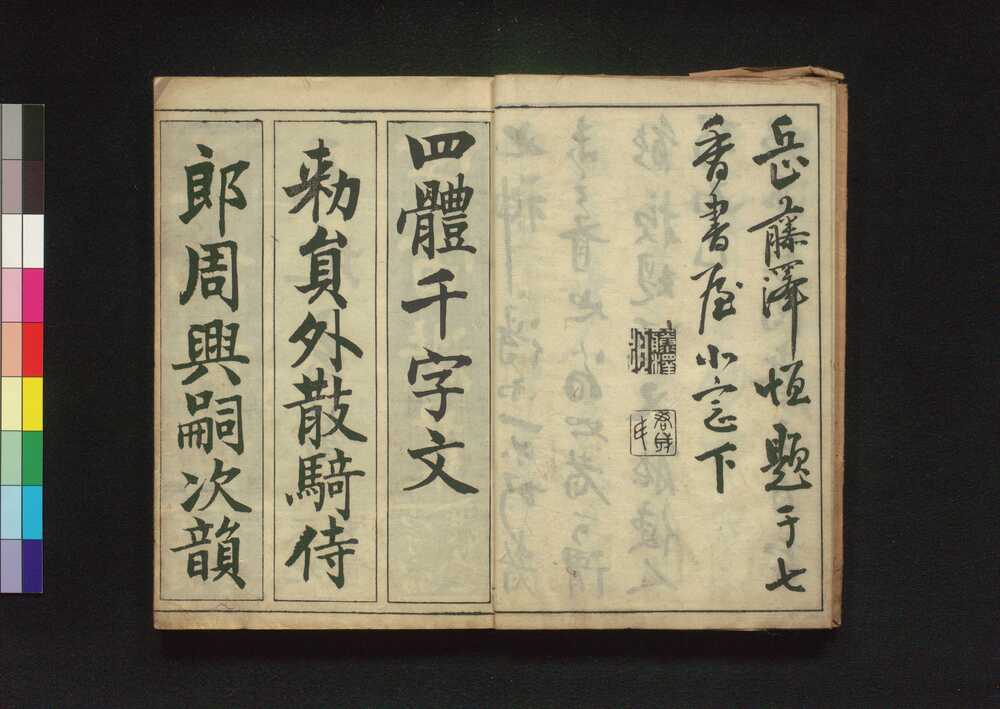 岳藤澤恒題于七
香書屋小窓下
藤澤
四體千字文
勅員外散騎侍
郎周興嗣次韻